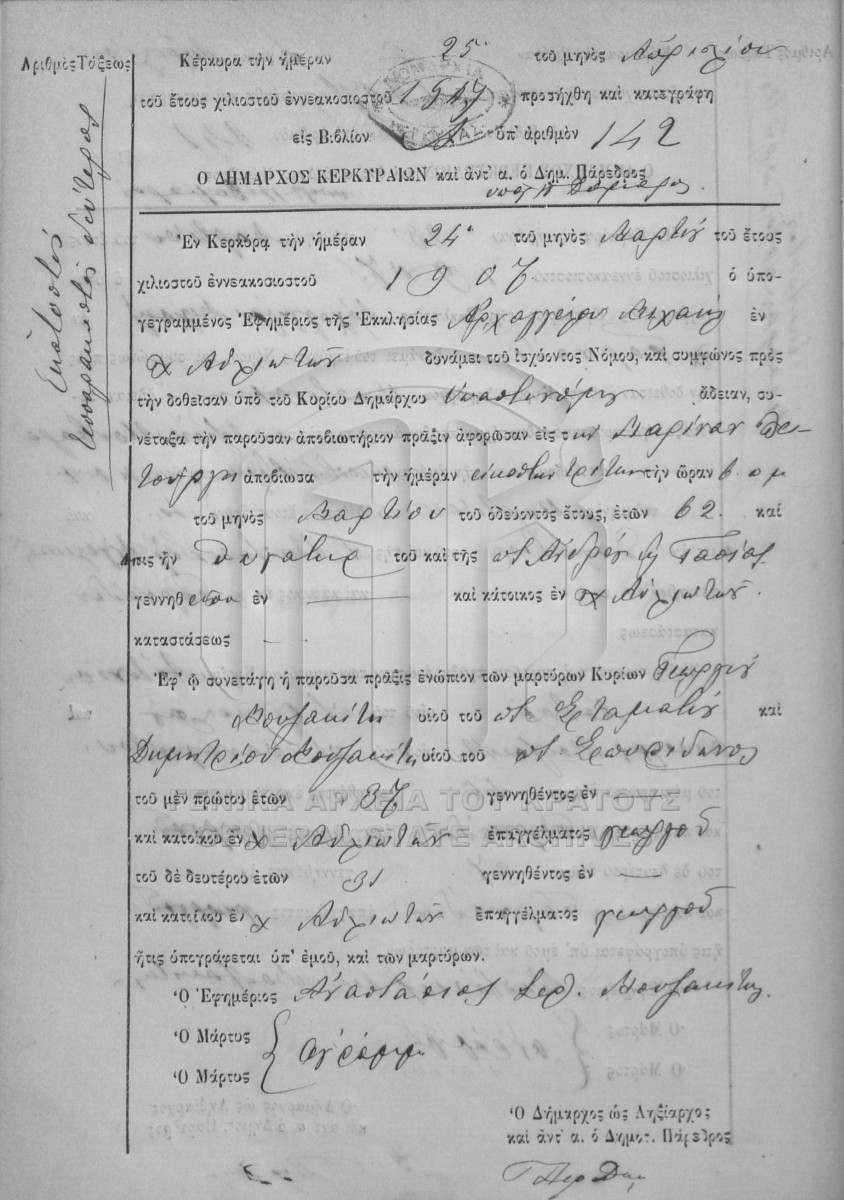 Ἀριθμὸς Τάξεως
Ἑκατοστὸς
τεσσαρακοστὸς δεύτερος
Κέρκυρα τὴν ἡμέραν 25 τοῦ μηνὸς Ἀπριλίου
τοῦ ἔτους χιλιοστοῦ ἐννεακοσιοστοῦ 1907 προσήχθη καὶ κατεγράφη
εἰς Βιβλίον Α ὑπ' ἀριθμὸν 142
Ο ΔΗΜΑΡΧΟΣ ΚΕΡΚΥΡΑΙΩΝ καὶ ἀντ' α. ὁ Δημ. Πάρεδρος
Ἐν Κερκύρᾳ τὴν ἡμέραν 24 τοῦ μηνὸς Μαρτίου τοῦ ἔτους
χιλιοστοῦ ἐννεακοσιοστοῦ 1907 ὁ ὑπο-
γεγραμμένος Ἐφημέριος τῆς Ἐκκλησίας Ἀρχαγγέλου Μιχαὴλ ἐν
χ Αὐλιωτῶν δυνάμει τοῦ ἰσχύοντος Νόμου, καὶ συμφώνος πρὸς
τὴν δοθεῖσαν ὑπὸ τοῦ Κυρίου Δημάρχου ἄδειαν, συ-
νέταξα τὴν παροῦσαν ἀποβιωτήριον πρᾶξιν ἀφορῶσαν εἰς τὴν Μαρίναν
ἀποβιωσα τὴν ἡμέραν εἰκοστὴν τρίτην τὴν ὥραν 6 π μ
τοῦ μηνὸς Μαρτίου τοῦ ὁδεύοντος ἔτους, ἐτῶν 62. καὶ
ἥτις ἦν θυγάτηρ τοῦ καὶ τῆς ποτ. Ἀνδρέου
γεννηθεῖσα ἐν — καὶ κάτοικος ἐν χ Αὐλιωτῶν.
καταστάσεως —
Ἐφ' ᾧ συνετάγη ἡ παροῦσα πρᾶξις ἐνώπιον τῶν μαρτύρων Κυρίων Γεωργίου
Μουζακίτη υἱοῦ τοῦ ποτ. Σταματίου καὶ
Δημητρίου Μουζακίτη υἱοῦ τοῦ ποτ. Σπυρίδωνος
τοῦ μὲν πρώτου ἐτῶν 37 γεννηθέντος ἐν —
ΓΕΝΙΚΑ ΑΡΧΕΙΑ ΤΟΥ ΚΡΑΤΟΥΣ
καὶ κατοίκου ἐν χ Αὐλιωτῶν ἐπαγγέλματος γεωργοῦ
GENERAL STATE ARCHIVES
τοῦ δὲ δευτέρου ἐτῶν 31 γεννηθέντος ἐν —
καὶ κατοίκου ἐν χ Αὐλιωτῶν ἐπαγγέλματος γεωργοῦ
ἥτις ὑπογράφεται ὑπ' ἐμοῦ, καὶ τῶν μαρτύρων.
Ὁ Ἐφημέριος Ἀναστάσιος Ἱερ. Μουζακίτης
Ὁ Μάρτυς
ἀγράμμ
Ὁ Μάρτυς
Ὁ Δήμαρχος ὡς Ληξίαρχος
καὶ ἀντ α. ὁ Δημοτ. Πάρεδρος